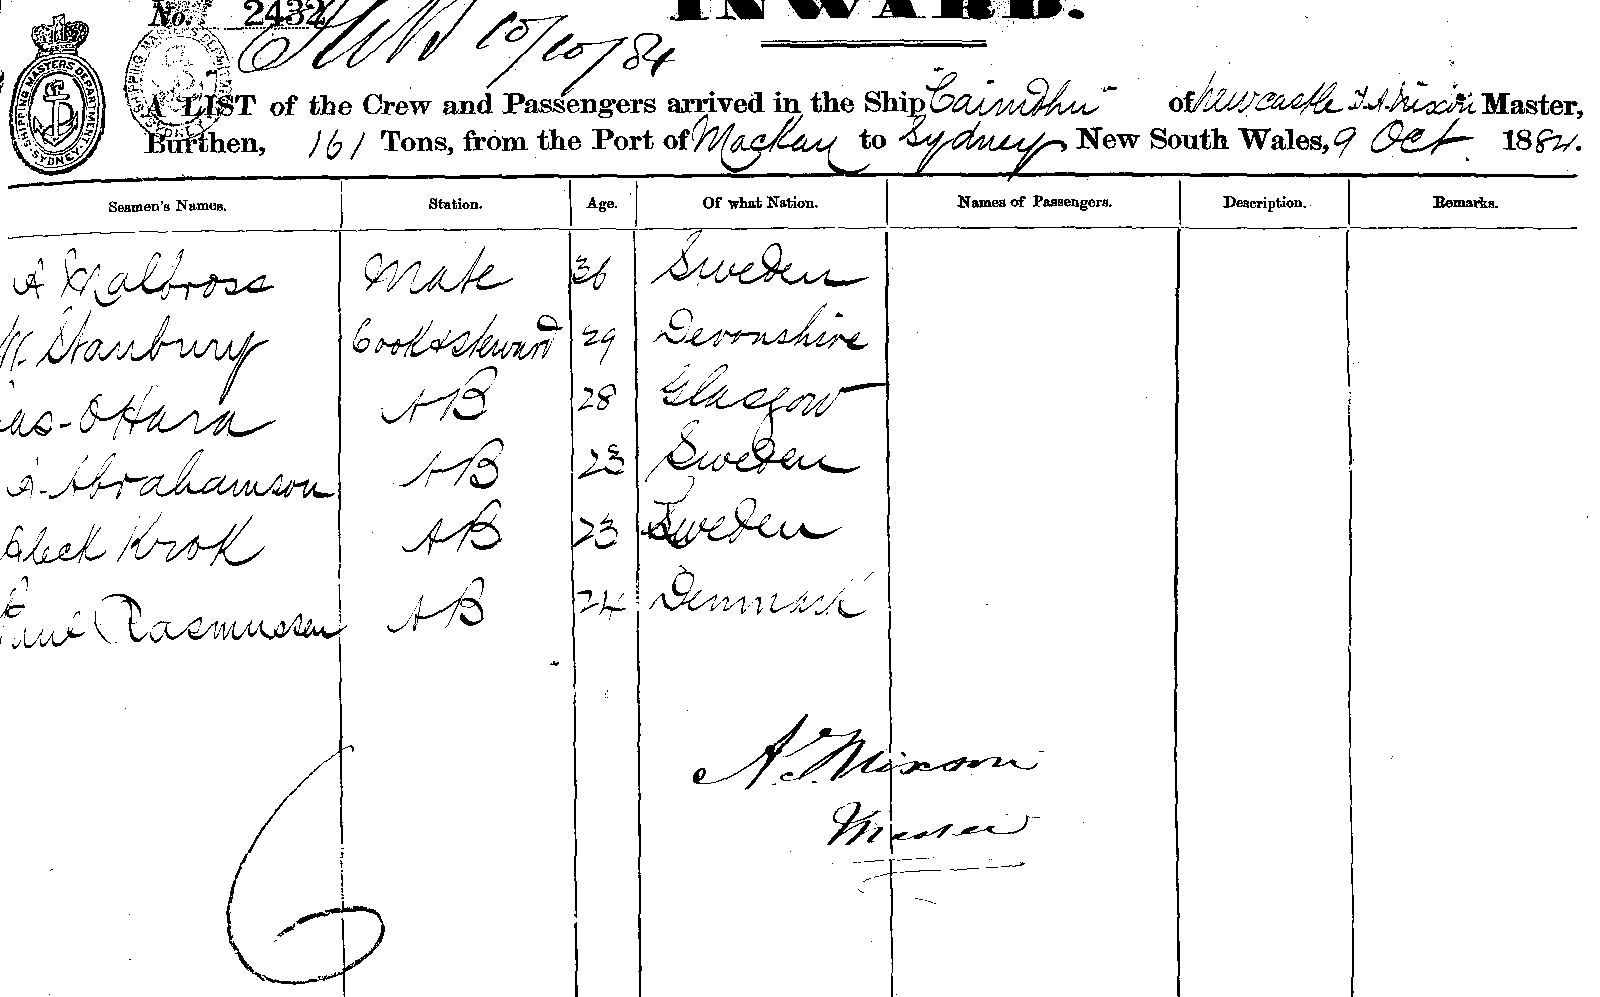 No. 2432
INWARD.
10/10/84
SHIPPING MASTERS DEPARTMENT SYDNEY
A LIST of the Crew and Passengers arrived in the Ship "Cairndhu" of Newcastle Nixon Master,
Burthen, 161 Tons, from the Port of Mackay to Sydney, New South Wales, 9 Oct 1884.
Seamen's Names. Station. Age. Of what Nation. Names of Passengers. Description. Remarks.
A Malbross Mate 36 Sweden
W. Stanbury Cook & Steward 29 Devonshire
Jas- O'Hara AB 28 Glasgow
A. Abrahamson AB 23 Sweden
Aleck Krok AB 23 Sweden
Paul Rasmussen AB 24 Denmark
Nixon
Master
6